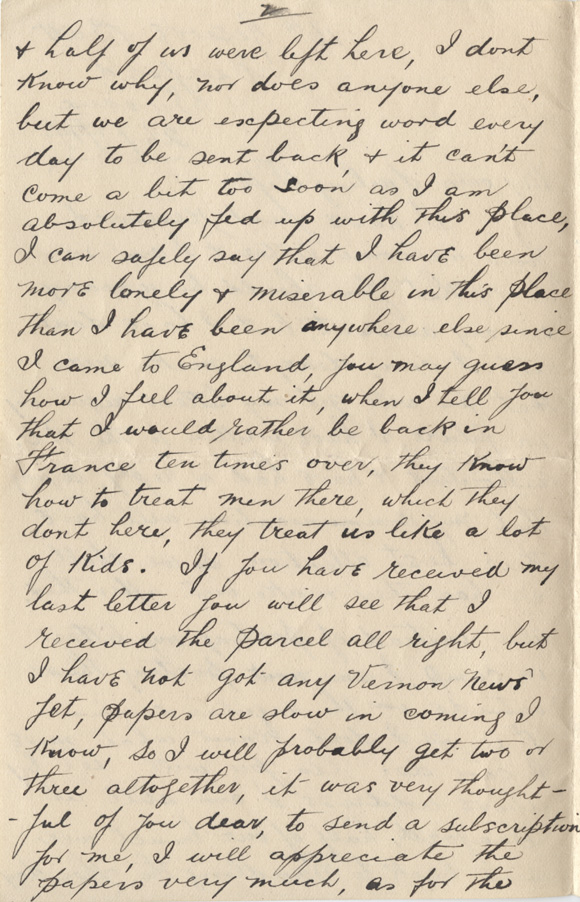 2
& half of us were left here, I dont
know why, nor does anyone else,
but we are expecting word every
day to be sent back, & it can't
come a bit too soon, as I am
absolutely fed up with this place,
I can safely say that I have been
more lonely & miserable in this place
than I have been anywhere else since
I came to England, you may guess
how I feel about it, when I tell you
that I would rather be back in
France ten times over, they know
how to treat men there, which they
dont here, they treat us like a lot
of kids. If you have received my
last letter you will see that I
received the parcel all right, but
I have not got any Vernon News
yet, papers are slow in coming I
know, so I will probably get two or
three altogether, it was very thought-
-ful of you dear, to send a subscription
for me, I will appreciate the
papers very much, as for the